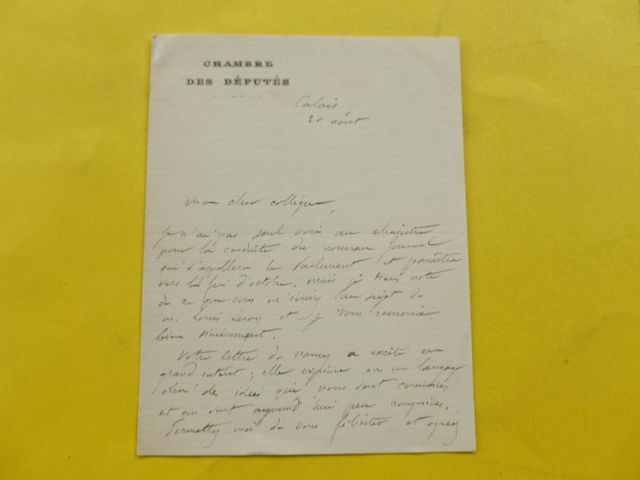 CHAMBRE
DES DÉPUTÉS
Calais
20 août
mon cher collègue,
Je n'ai pas seul voix au chapitre
pour la conduite du nouveau Journal
qui s'appellera le Parlement et paraîtra
vers la fin d'octobre. mais je note
de ce que vous m'écrivez au sujet de
m. Louis et je vous remercie
bien sincèrement.
Votre lettre de a excité un
grand intérêt; elle exprime en un langage
élevé des idées qui nous sont communes
et qui sont aujourd'hui peu comprises.
Permettez moi de vous féliciter et agréez